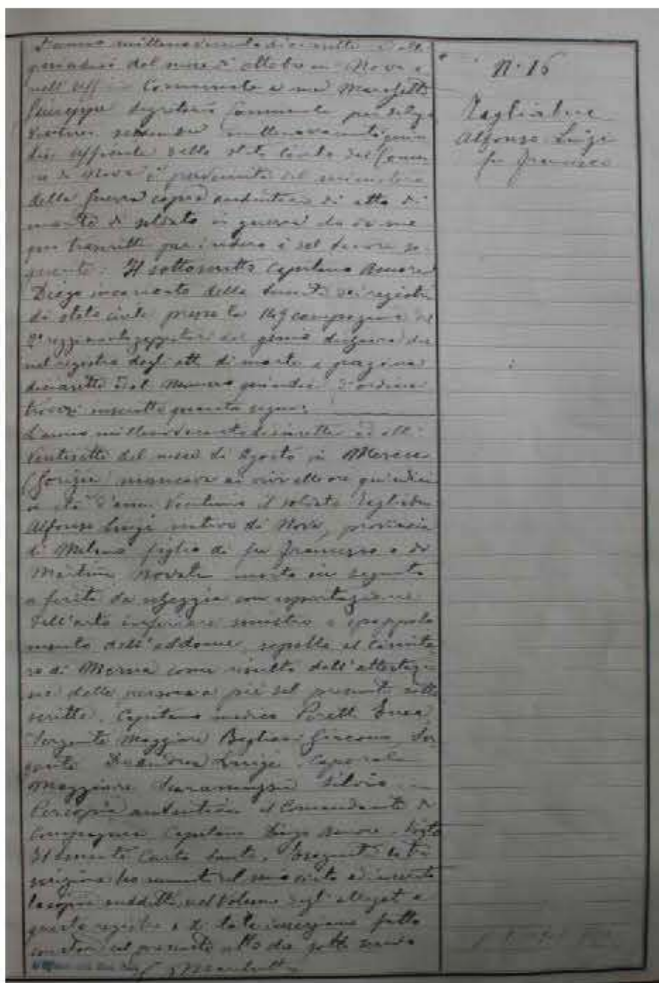 L'anno millenovecentodiciassette addì
quindici del mese di ottobre in Nova e
nell'Uff Comunale a me Marchetti
Giuseppe Segretario Comunale per delega
millenovecentoquin
dici ufficiale dello stato civile del Comu
ne di Nova è pervenuta dal ministero
della Guerra copia autentica di atto di
morte di soldato in guerra da
trascritta per intero è del tenore se
guente: Il sottoscritto Capitano Amore
Diego incaricato della tenuta dei registri
di stato civile presso la 149 compagnia del
2° reggimento zappatori del genio dichiara che
nel registro degli atti di morte a pagina
diciassette ed al numero quindici d'ordine
trovasi inscritto quanto segue:
L'anno millenovecentodiciassette ed alli
ventisette del mese di Agosto in Merna
(Gorizia) mancava ai vivi alle ore quindici
in età d'anni ventuno il soldato Tagliabue
Alfonso Luigi nativo di Nova, provincia
di Milano figlio di fu Francesco e di
Martina Novati morto in seguito
a ferite da scheggia con asportazione
dell'arto inferiore sinistro e spappola
mento dell'addome, sepolto al Cimite
ro di Merna come risulta dall'attestazio
ne delle persone a piè del presente sotto
scritte. Capitano medico Enea
Sergente Maggiore Giacomo Ser
gente Luigi Caporale
Maggiore Silvio
Per copia autentica il Comandante di
Compagnia Capitano Diego Amore. Visto
Santo. Eseguita la tra
scrizione ho munito del mio visto ed inserito
la copia suddetta nel volume degli allegati a
questo registro e di tale inserzione fatto
constare col presente atto che sotto scrivo
G Marchetti
N. 16
Tagliabue
Alfonso Luigi
fu Francesco